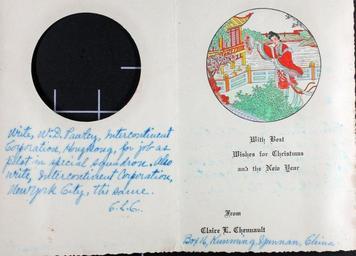 Write, W. D. Pawley, Intercontinent
Corporation, Hong Kong, for job as
pilot in special squadron. Also
write, Intercontinent Corporation,
New York City, the same.
C.L.C.
With Best
Wishes for Christmas
and the New Year
From
Claire L. Chennault
Box 16, Kunming, Yunnan, China